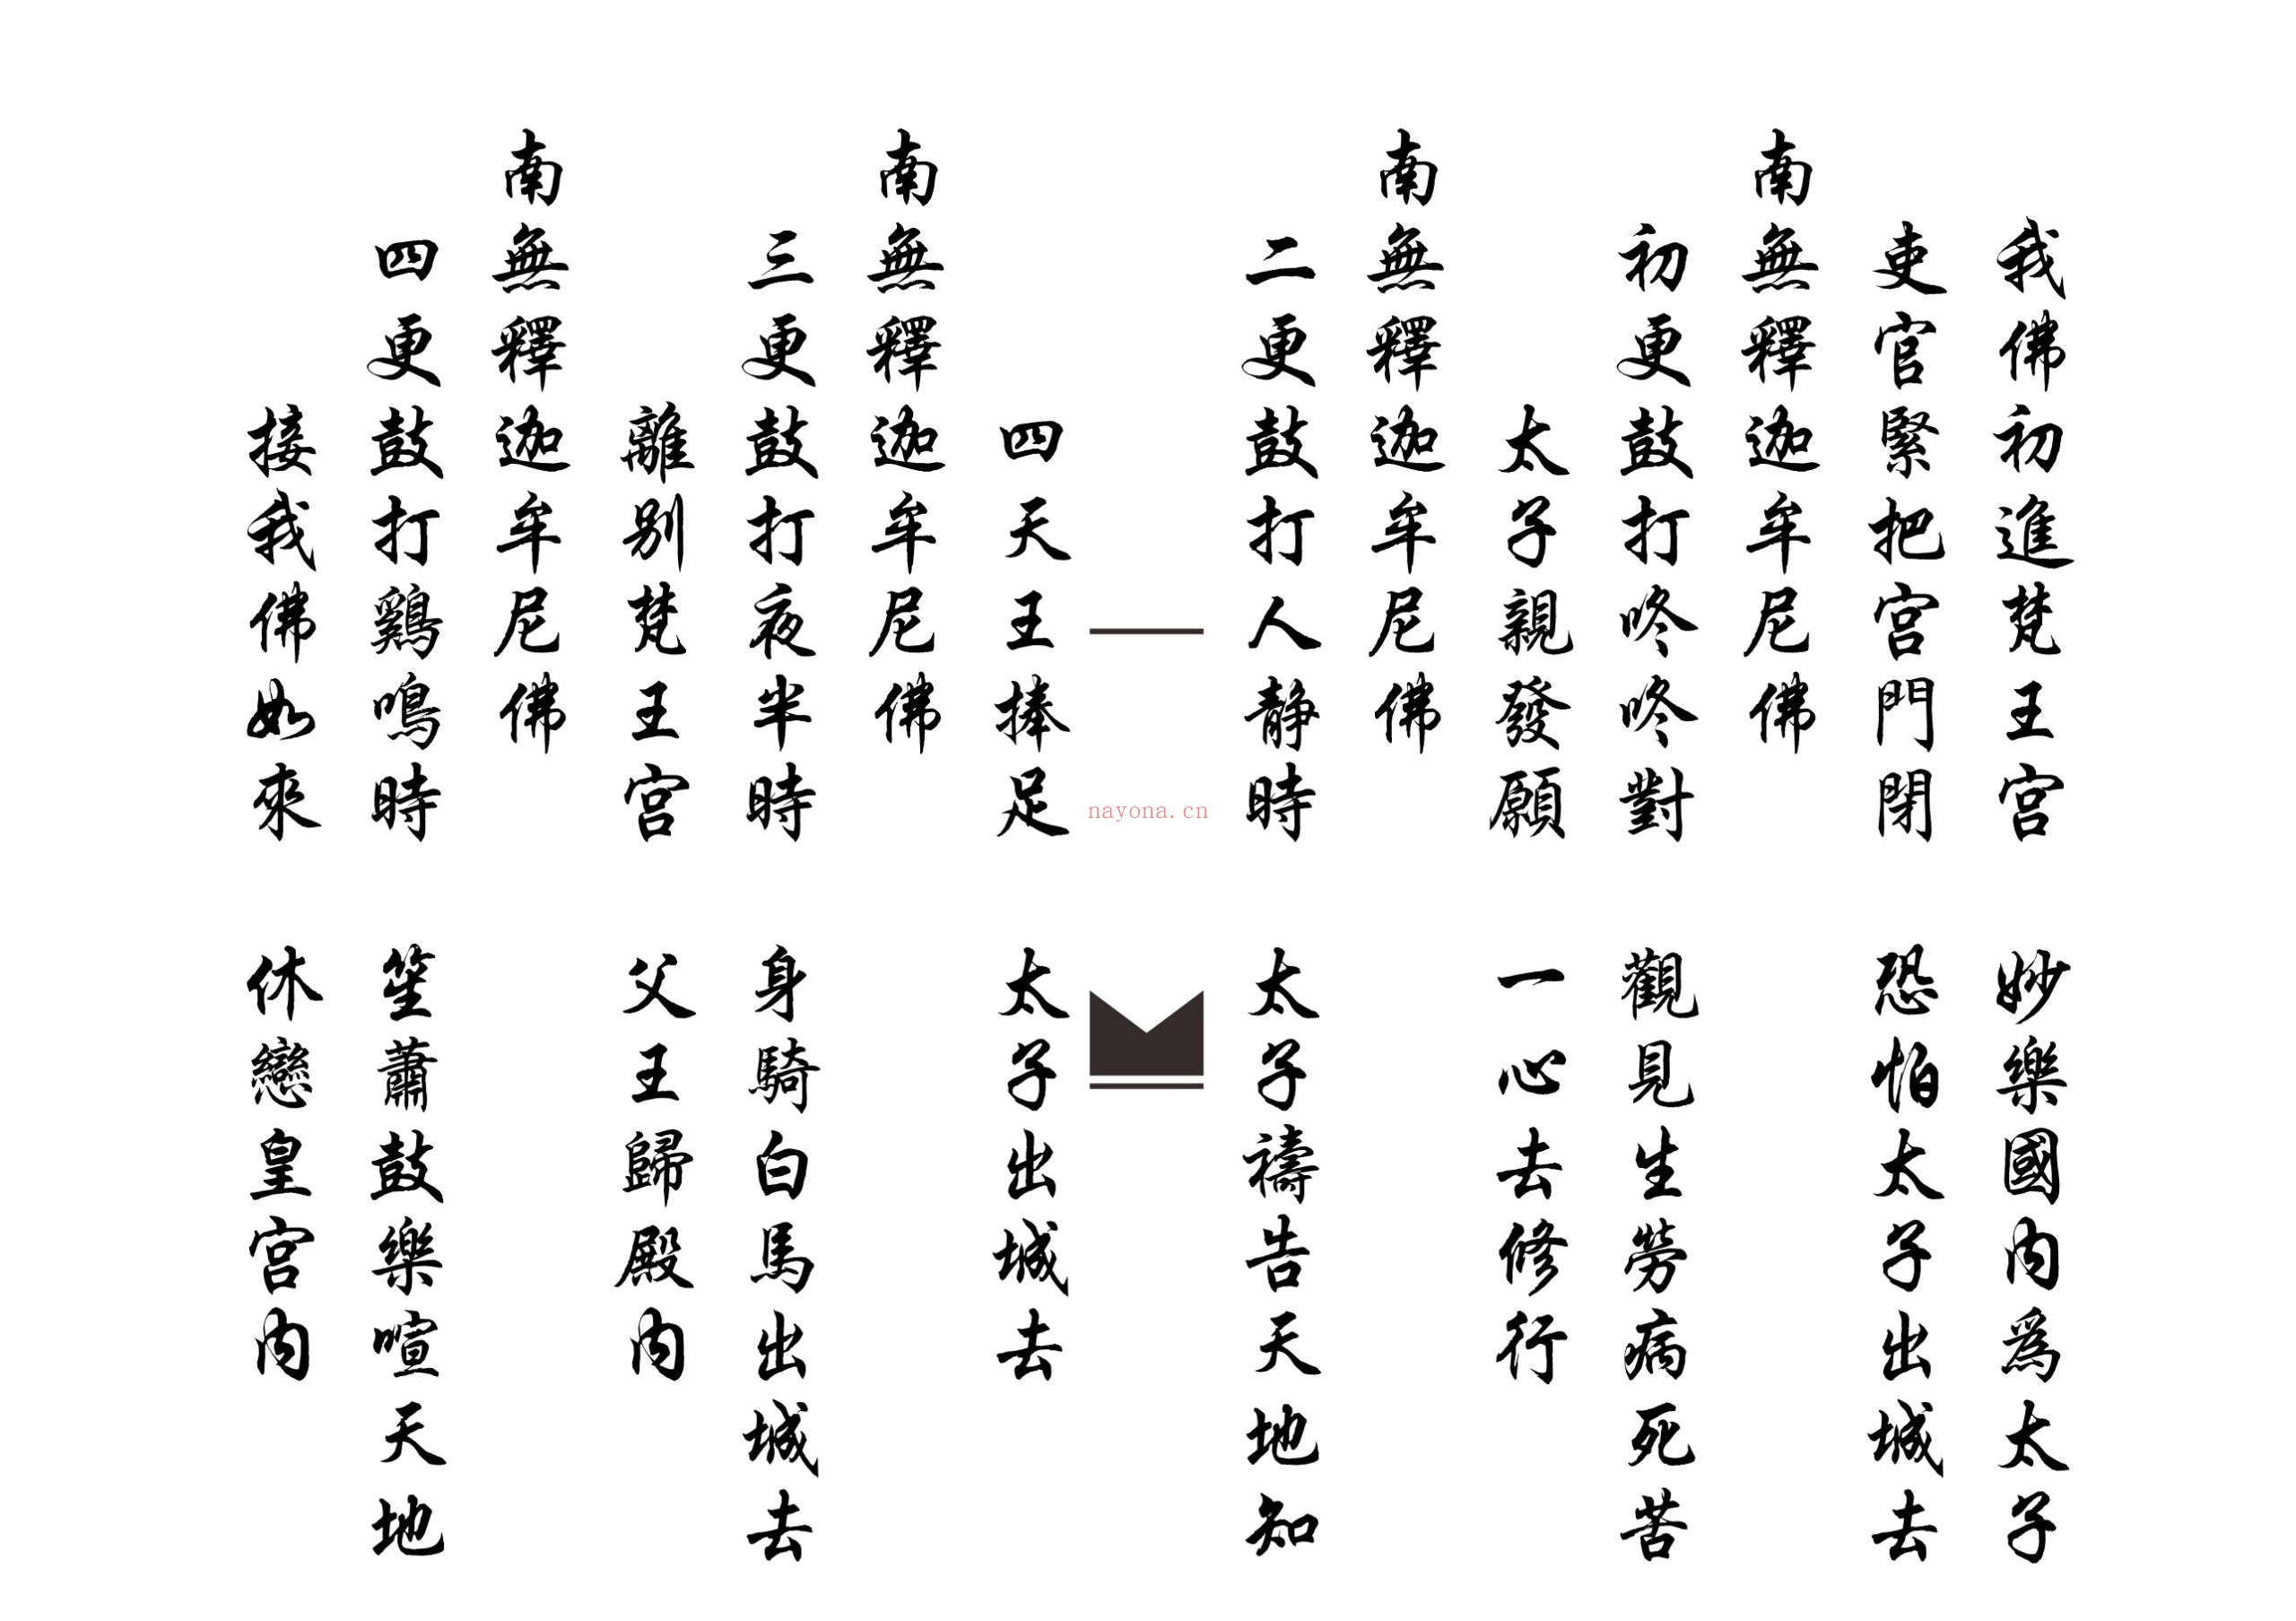 我佛初進梵王宫　妙樂國内爲太子
吏官緊把宫門閉　恐怕太子出城去
南無釋迦牟尼佛
初更鼓打咚咚對　觀見生勞病死苦
太子親發願　一心去修行
南無釋迦牟尼佛
二更鼓打人静時　太子禱告天地知
nayona.cn
四天王捧足　太子出城去
南無釋迦牟尼佛
三更鼓打夜半時　身騎白馬出城去
離别梵王宫　父王歸殿内
南無釋迦牟尼佛
四更鼓打鷄鳴時　笙蕭鼓樂喧天地
接我佛如來　休戀皇宫内